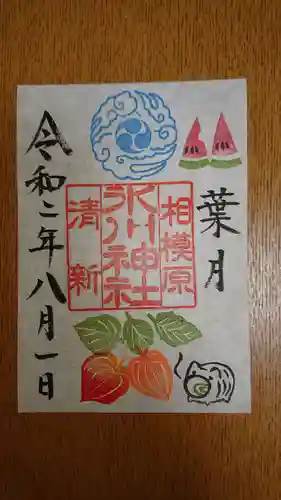 葉月
相模原
氷川神社
清新
令和二年八月一日